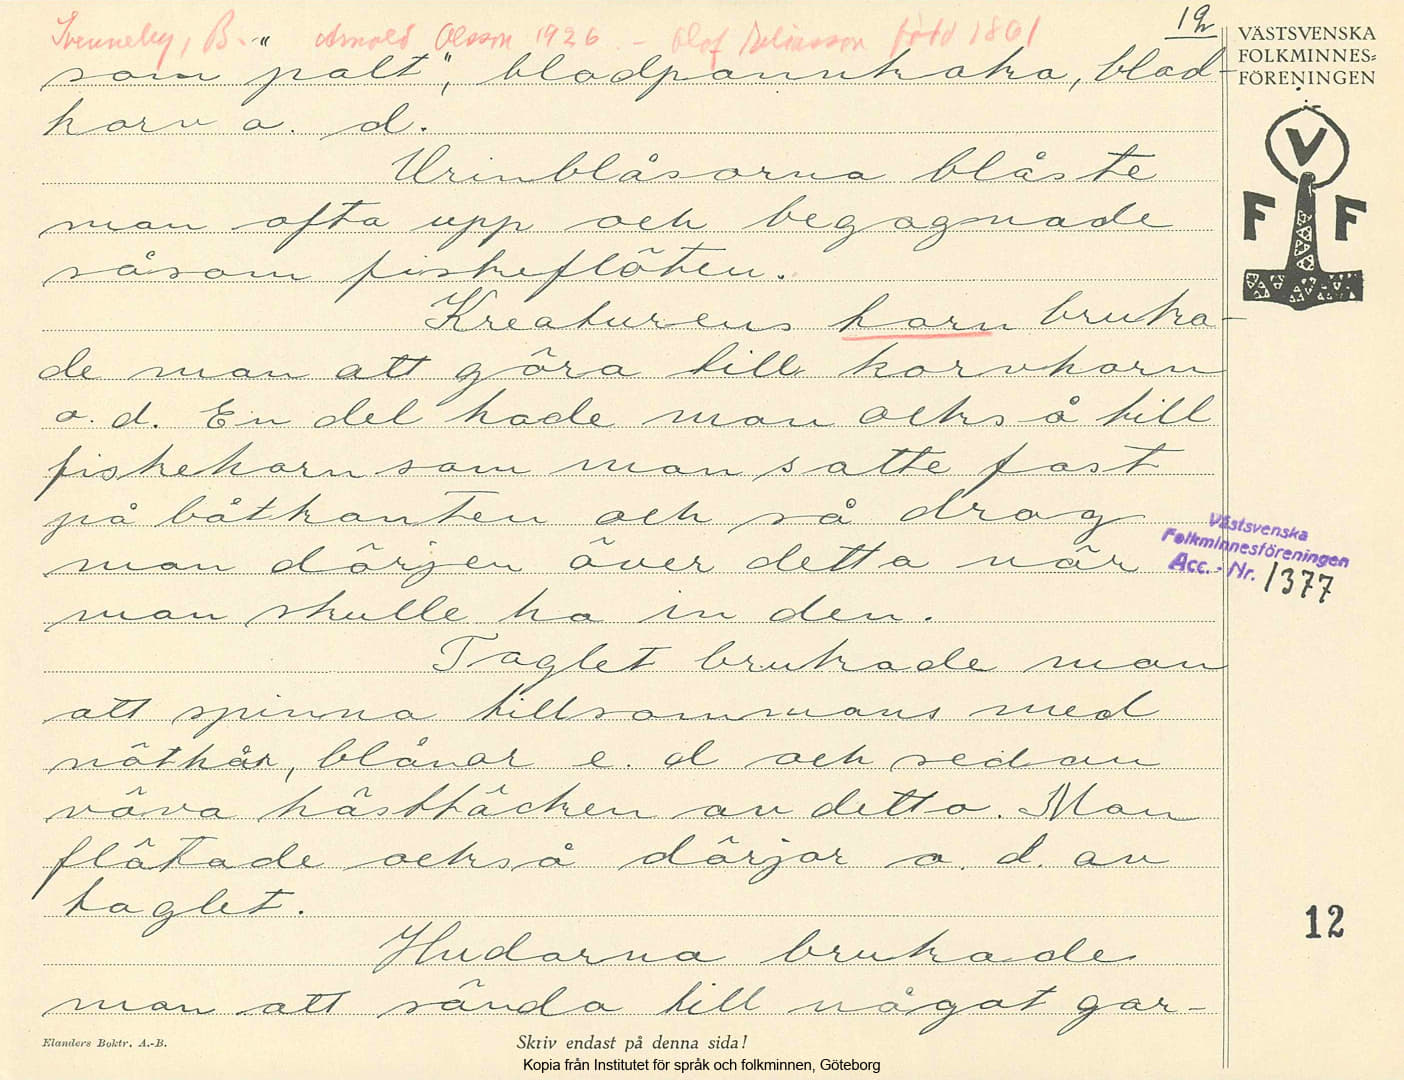 Svenneby, B. " Arnold Olsson 1926. - Olof Deliasson född 1861
12
som palt", blodpannkaka, blod-
korv o. d.
Urinblåsorna blåste
man ofta upp och begagnade
såsom fiskeflöten.
Kreaturens horn bruka-
de man att göra till korvhorn
o. d. En del hade man också till
fiskehorn som man satte fast
på båtkanten och så drog
man dörjen över detta när
man skulle ha in den.
Taglet brukade man
att spinna tillsammans med
nöthår, blånor e. d och sedan
väva hästtäcken av detta. Man
flätade också dörjor o. d. av
taglet.
Hudarna brukade
man att sända till något gar-
VÄSTSVENSKA
FOLKMINNES=
FÖRENINGEN
V
F F
Västsvenska
Folkminnesföreningen
Acc. - Nr. 1377
12
Elanders Boktr. A.-B.
Skriv endast på denna sida!
Kopia från Institutet för språk och folkminnen, Göteborg